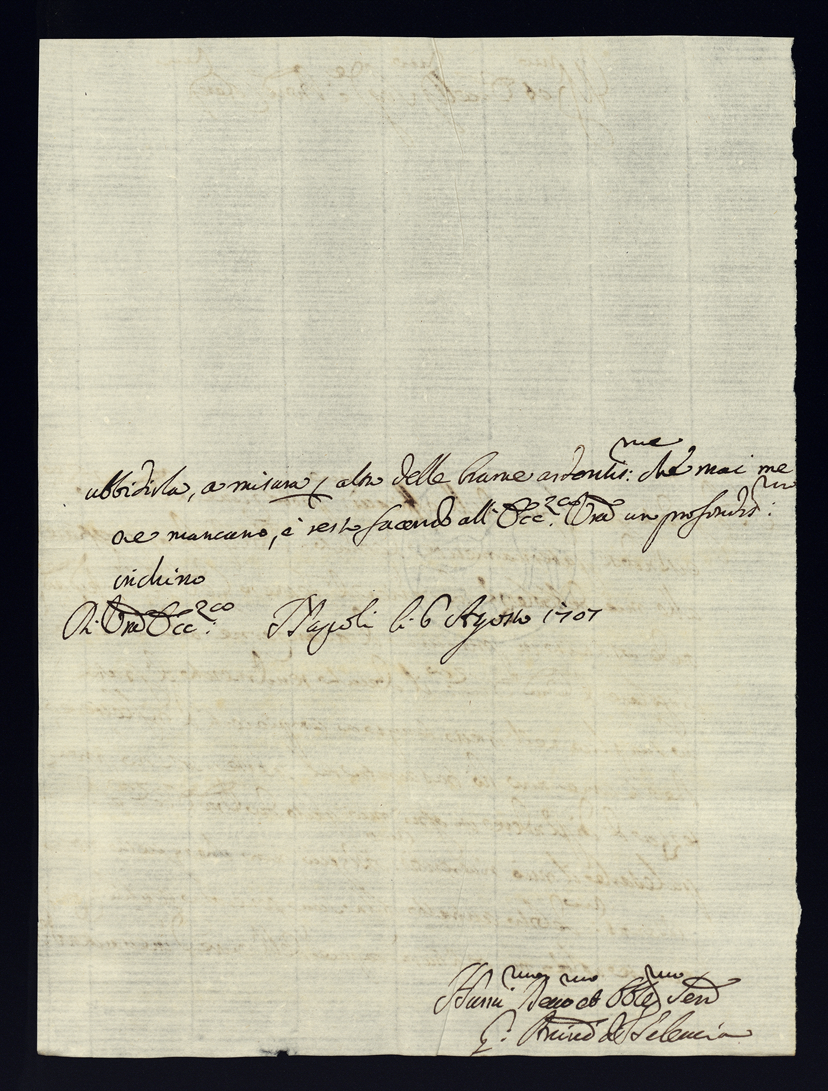 ubbidirla, a misura per altro delle brame ardentis:me che mai me
ne mancano, è resto facendo all' Ecc.za V.ra un profondis:mo
inchino
Di V.ra Ecc.za Napoli li 6 Agosto 1707
Humi.mo Devo.mo et Obblig.mo Serv
Arciv.o di Seleucia